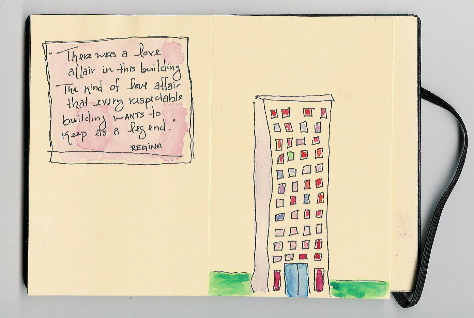 There was a love
affair in this building
The kind of love affair
that every respectable
building WANTS to
keep as a legend.
REGINA